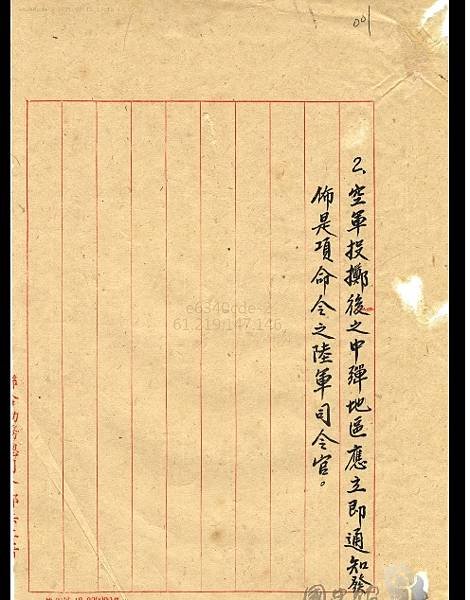 001
2、空軍投擲後之中彈地區應立即通知發
佈是項命令之陸軍司令官。
e6340cde-2
61.219.147.146